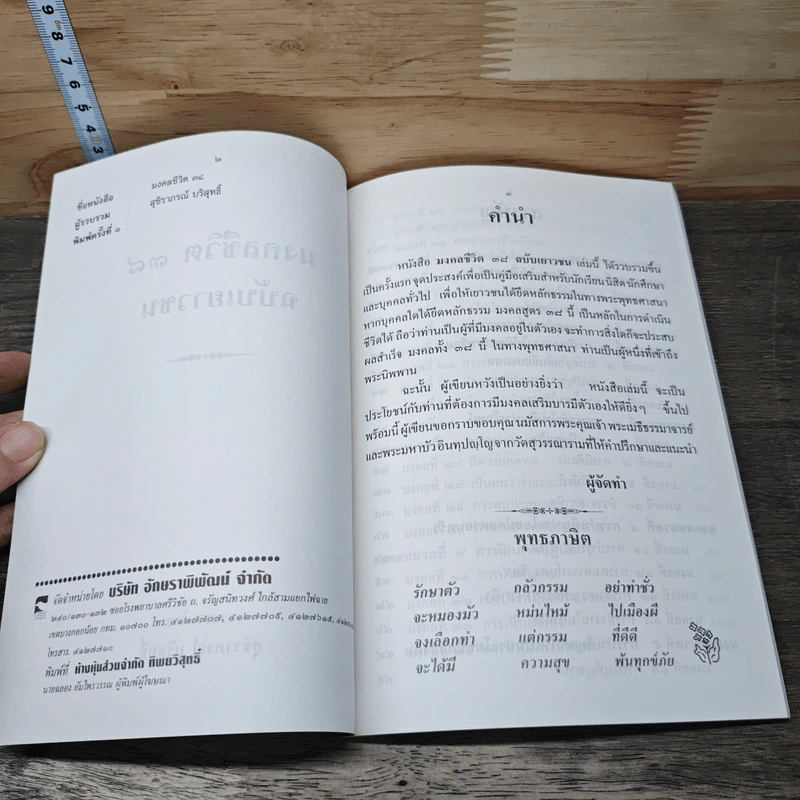 9
8
7
6
5
4
3
๒
ชื่อหนังสือ : มงคลชีวิต ๓๘
ผู้รวบรวม : สุชิราภรณ์ บริสุทธิ์
พิมพ์ครั้งที่ ๑ :
จัดจำหน่ายโดย บริษัท อักษราพิพัฒน์ จำกัด
๒๘๐/๑๓๐-๑๓๒ ซอยโรงพยาบาลศรีวิชัย ถ. จรัญสนิทวงศ์ ใกล้สามแยกไฟฉาย
เขตบางกอกน้อย กทม. ๑๐๗๐๐ โทร. ๔๑๒๗๗๐๗, ๔๑๒๗๗๐๙, ๔๑๒๗๖๑๕,
โทรสาร. ๔๑๒๗๗๑๐
พิมพ์ที่ ห้างหุ้นส่วนจำกัด ทิพยวิสุทธิ์
นายฉลอง อัมไพรวรรณ ผู้พิมพ์ผู้โฆษณา
๓
คำนำ
หนังสือ มงคลชีวิต ๓๘ ฉบับเยาวชน เล่มนี้ ได้รวบรวมขึ้น
เป็นครั้งแรก จุดประสงค์เพื่อเป็นคู่มือเสริมสำหรับนักเรียน นิสิต นักศึกษา
และบุคคลทั่วไป เพื่อให้เยาวชนได้ยึดหลักธรรมในทางพระพุทธศาสนา
หากบุคคลใดได้ยึดหลักธรรม มงคลสูตร ๓๘ นี้ เป็นหลักในการดำเนิน
ชีวิตได้ ถือว่าท่านเป็นผู้ที่มีมงคลอยู่ในตัวเอง จะทำการสิ่งใดก็จะประสบ
ผลสำเร็จ มงคลทั้ง ๓๘ นี้ ในทางพุทธศาสนา ท่านเป็นผู้หนึ่งที่เข้าถึง
พระนิพพาน
ฉะนั้น ผู้เขียนหวังเป็นอย่างยิ่งว่า หนังสือเล่มนี้ จะเป็น
ประโยชน์กับท่านที่ต้องการมีมงคลเสริมบารมีตัวเองให้ดียิ่งๆ ขึ้นไป
พร้อมนี้ ผู้เขียนขอกราบขอบคุณ นมัสการพระคุณเจ้า พระเมธีธรรมาจารย์
และพระมหาบัว อินทฺปญฺโญ จากวัดสุวรรณารามที่ให้คำปรึกษาและแนะนำ
ผู้จัดทำ
พุทธภาษิต
รักษาตัว กลัวกรรม อย่าทำชั่ว
จะหมองมัว หม่นไหม้ ไปเมืองผี
จงเลือกทำ แต่กรรม ที่ดีดี
จะได้มี ความสุข พ้นทุกข์ภัย